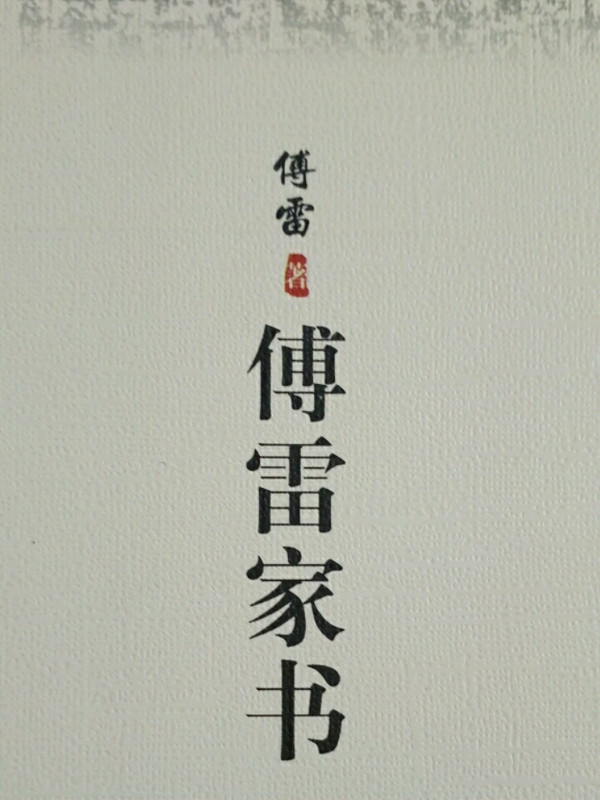 傅雷
著
傅雷家书